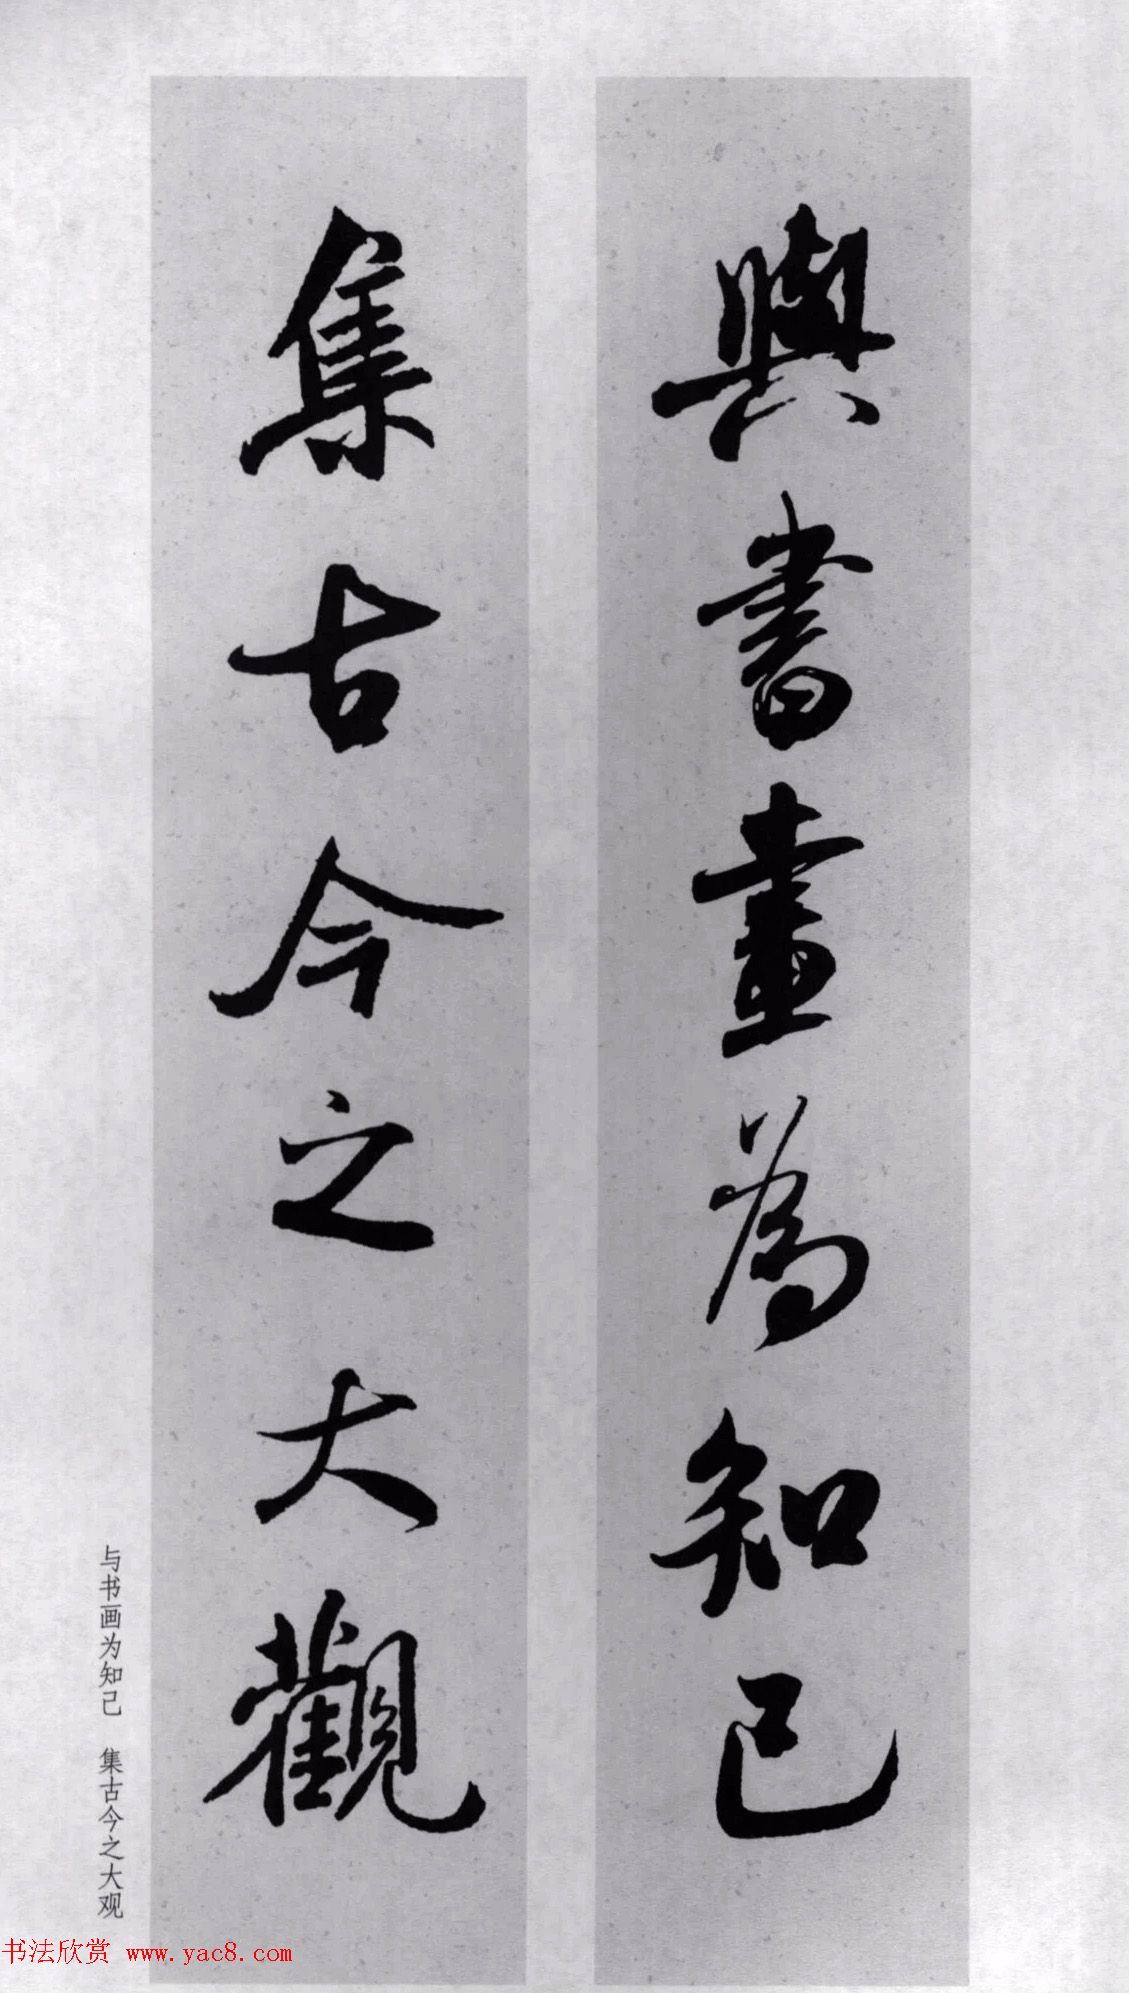 與書畫為知己
集古今之大觀
与书画为知己 集古今之大观
书法欣赏 www.yac8.com